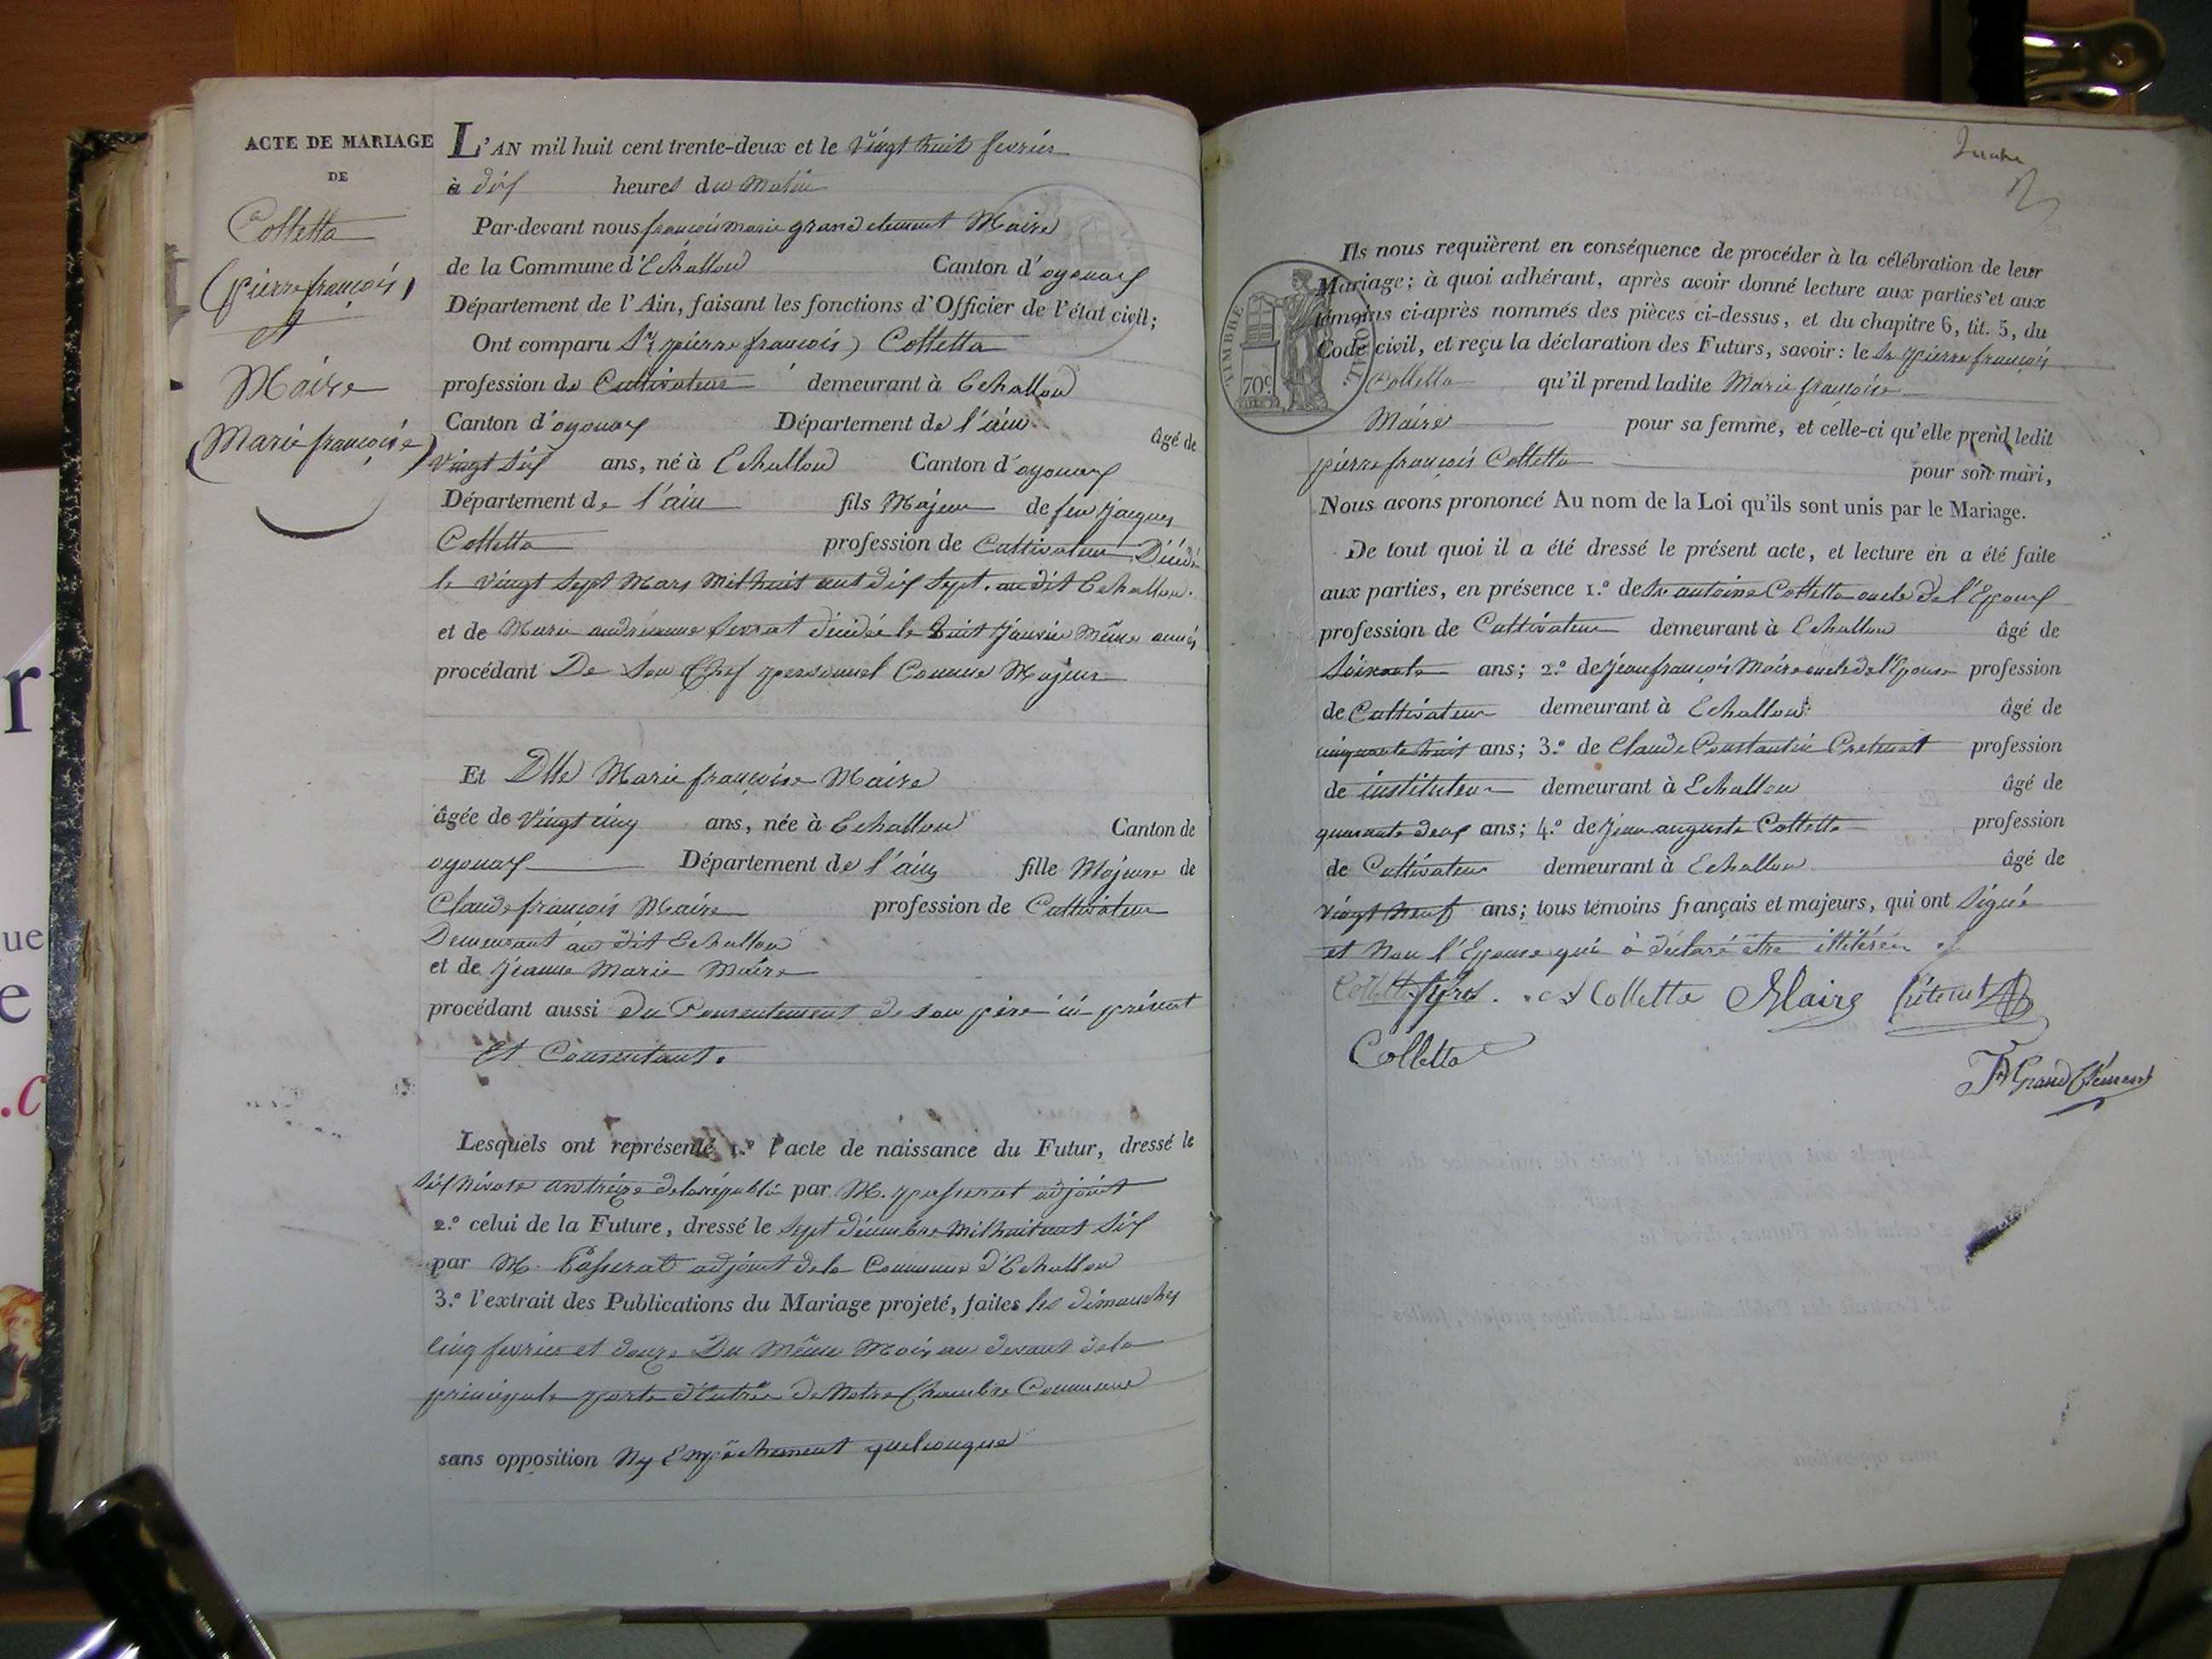 ACTE DE MARIAGE
DE
Colletta
(pierre françois)
et
Maire
(Marie françoise)
L'AN mil huit cent trente-deux et le Vingt huit fevrier
à dix heures du Matin
Par-devant nous françois marie grand clement Maire
de la Commune d'Echallon Canton d'oyonax
Département de l'Ain, faisant les fonctions d'Officier de l'état civil;
Ont comparu Sr (pierre françois) Colletta
profession de Cultivateur demeurant à Echallon
Canton d'oyonax Département de l'ain âgé de
vingt six ans, né à Echallon Canton d'oyonax
Département de l'ain fils Majeur de feu Jacques
Colletta profession de Cultivateur Décédé
le vingt sept Mars mil huit cent dix sept. au dit Echallon.
et de Marie andréanne ferrat décédée le huit Janvier Même année
procédant De Son Chef personnel Comme Majeur
Et Dlle Marie françoise Maire
âgée de Vingt cinq ans, née à Echallon Canton de
oyonax Département de l'ain fille Majeure de
Claude françois Maire profession de Cultivateur
Demeurant au dit Echallon
et de Jeanne Marie Maire
procédant aussi Du Consentement de son père ici présent
Et Consentant.
Lesquels ont représenté 1.º l'acte de naissance du Futur, dressé le
six Nivose an treize de la républi. par M. passerat adjoint
2.º celui de la Future, dressé le sept décembre Mil huit cent Six
par M. Passerat adjoint de la Commune d'Echallon
3.º l'extrait des Publications du Mariage projeté, faites les dimanches
Cinq fevrier et douze Du Même Mois au devant de la
principale porte d'Entrée de Notre Chambre Commune
sans opposition Ny Empêchement quelconque
TIMBRE
70c
Ils nous requièrent en conséquence de procéder à la célébration de leur
Mariage; à quoi adhérant, après avoir donné lecture aux parties et aux
témoins ci-après nommés des pièces ci-dessus, et du chapitre 6, tit. 5, du
Code civil, et reçu la déclaration des Futurs, savoir: le Sr pierre françois
Colletta qu'il prend ladite Marie françoise
Maire pour sa femme, et celle-ci qu'elle prend ledit
pierre françois Colletta pour son mari,
Nous avons prononcé Au nom de la Loi qu'ils sont unis par le Mariage.
De tout quoi il a été dressé le présent acte, et lecture en a été faite
aux parties, en présence 1.º de Sr antoine Colletta oncle de l'Epoux
profession de Cultivateur demeurant à Echallon âgé de
Soixante ans; 2.º de Jean françois Maire oncle de l'Epouse profession
de Cultivateur demeurant à Echallon âgé de
cinquante huit ans; 3.º de Claude Constantin profession
de instituteur demeurant à Echallon âgé de
quarante deux ans; 4.º de Jean auguste Colletta profession
de Cultivateur demeurant à Echallon âgé de
Vingt Neuf ans; tous témoins français et majeurs, qui ont Signé
et Non l'Epouse qui à déclaré être illitérée
Colletta Colletta Maire
Colletta
GrandClément